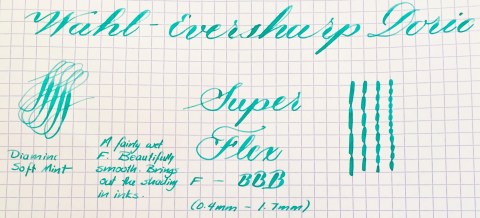 Wahl-Eversharp Doric
Super
Flex
F - BBB
(0.4mm - 1.7mm)
Diamine
Soft Mint
A fairly wet
F. Beautifully
smooth. Brings
out the shading
in inks.